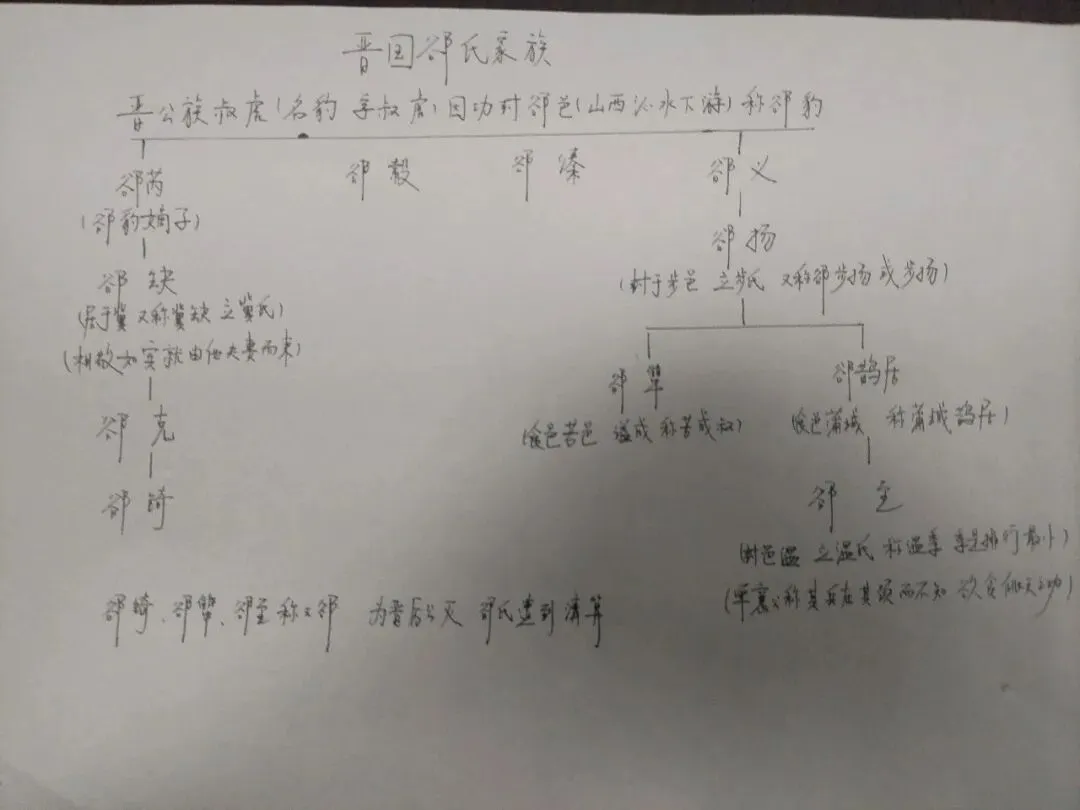 晋国郤氏家族
晋公族叔虎(名豹 字叔虎)因功封郤邑(山西沁水下游)称郤豹
郤芮 郤縠 郤溱 郤义
(郤豹嫡子)
郤扬
(封于步邑 立步氏 又称郤步扬或步扬)
郤缺
(居于冀 又称冀缺 立冀氏)
(相敬如宾就由他夫妻而来)
郤犨 郤鹊居
(食邑苦邑 谥成 称苦成叔) (食邑蒲城 称蒲城鹊居)
郤克
郤锜
郤至
(封邑温 立温氏 称温季 季是排行最小)
(单襄公称其兵在其颈而不知 欲贪佻天之功)
郤锜、郤犨、郤至称三郤 为晋厉公灭 郤氏遭到清算